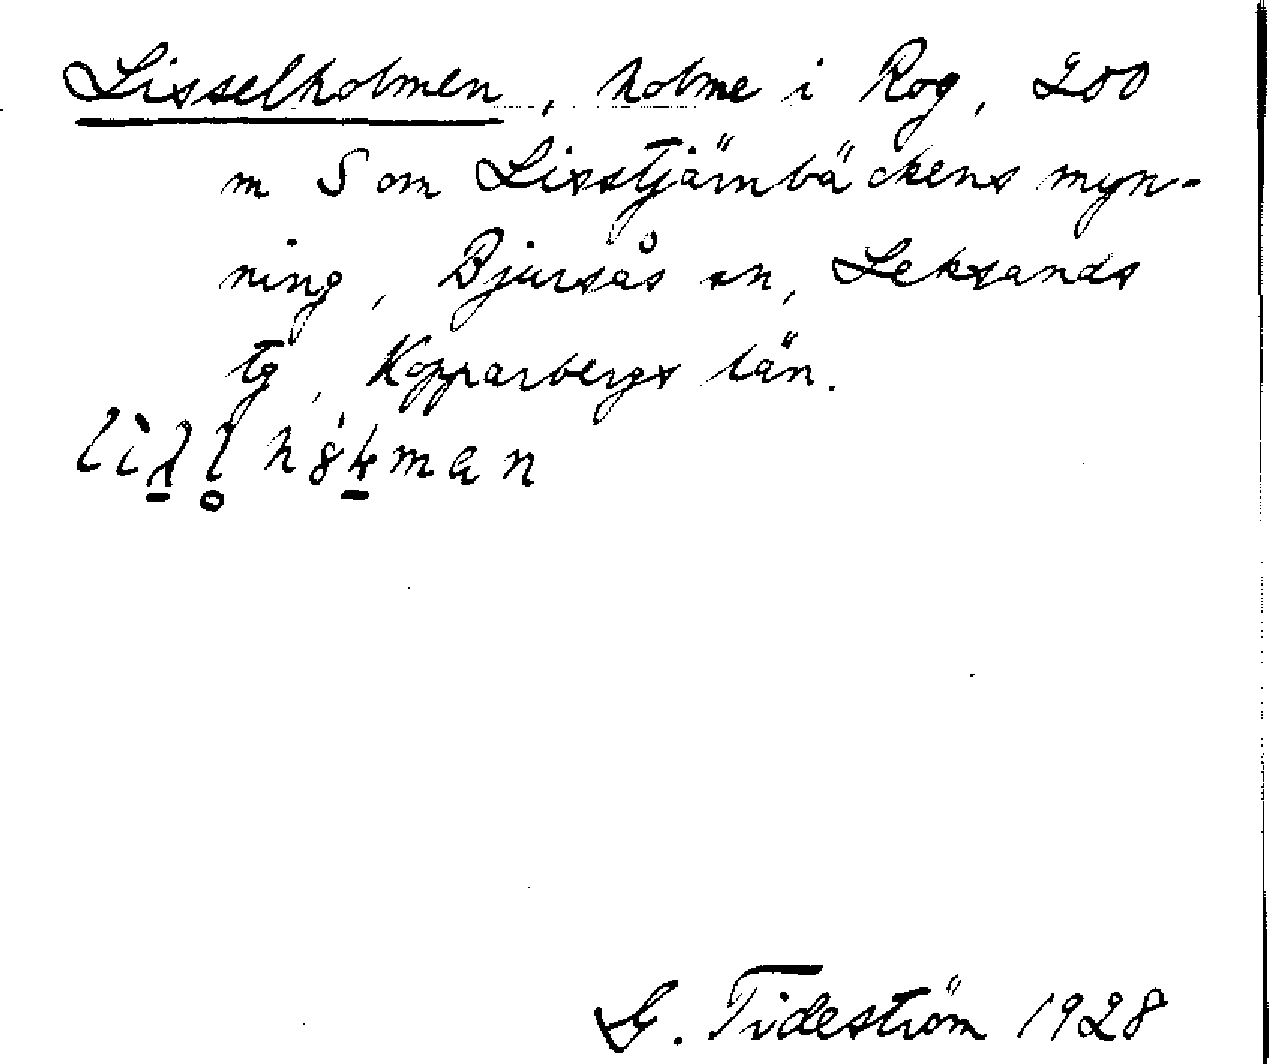 Lisselholmen, holme i Rog, 200
m S om Lisstjärnbäckens myn-
ning, Bjursås sn, Leksands
tg, Kopparbergs län.
G. Tideström 1928